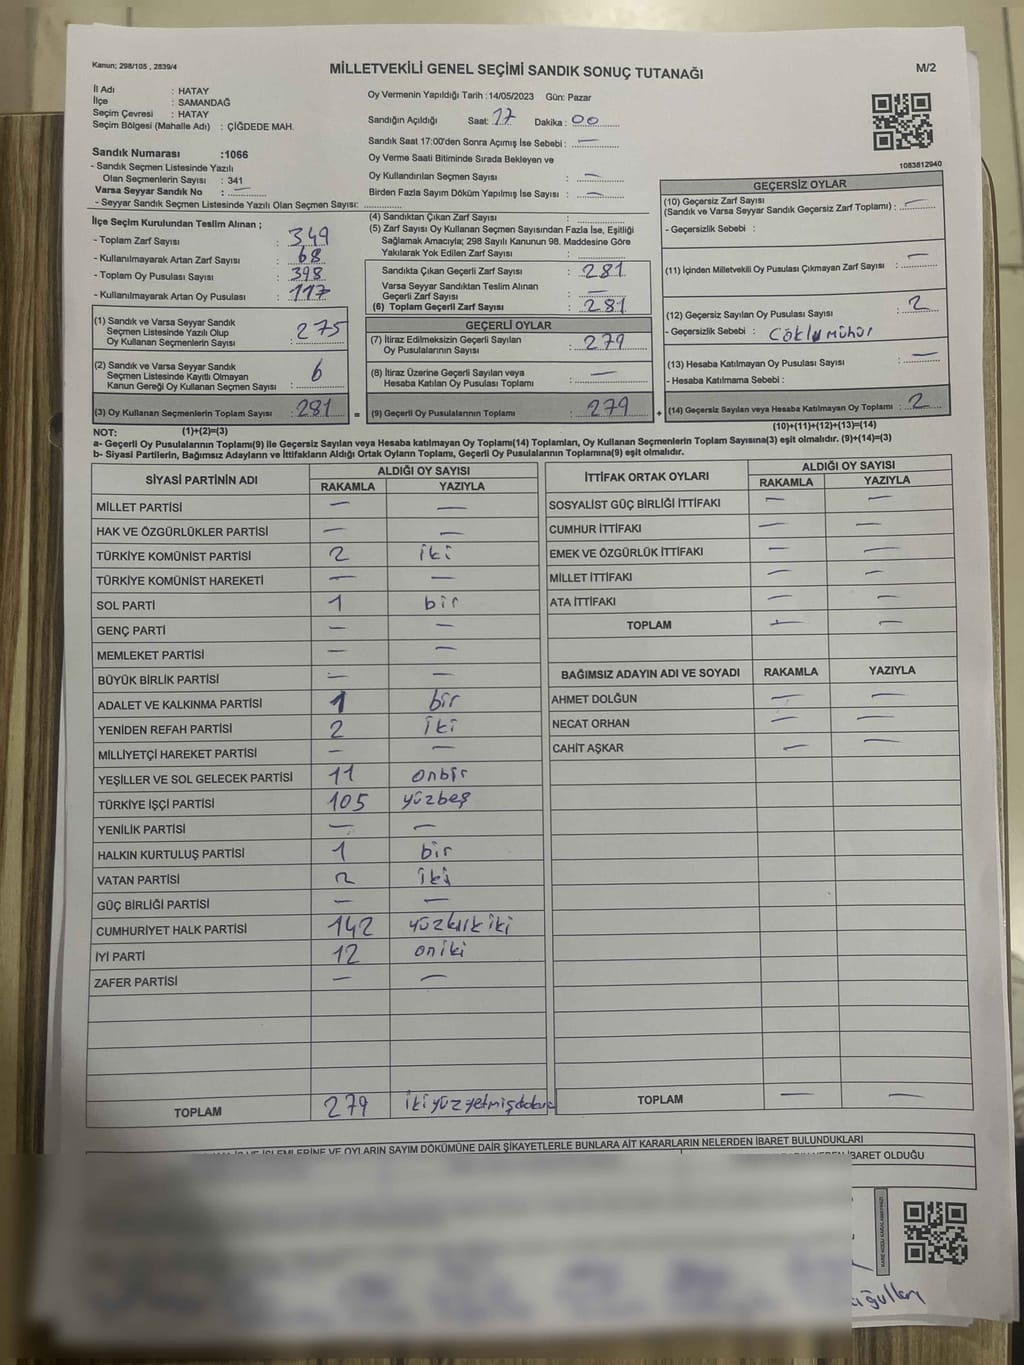 Kanun; 298/105 , 2839/4
MİLLETVEKİLİ GENEL SEÇİMİ SANDIK SONUÇ TUTANAĞI
M/2
İl Adı : HATAY
İlçe : SAMANDAĞ
Seçim Çevresi : HATAY
Seçim Bölgesi (Mahalle Adı) : ÇİĞDEDE MAH.
Sandık Numarası :1066
- Sandık Seçmen Listesinde Yazılı
Olan Seçmenlerin Sayısı : 341
Varsa Seyyar Sandık No : —
- Seyyar Sandık Seçmen Listesinde Yazılı Olan Seçmen Sayısı:
Oy Vermenin Yapıldığı Tarih :14/05/2023 Gün: Pazar
Sandığın Açıldığı Saat: 17 Dakika : 00
Sandık Saat 17:00'den Sonra Açımış İse Sebebi : —
Oy Verme Saati Bitiminde Sırada Bekleyen ve
Oy Kullandırılan Seçmen Sayısı : —
Birden Fazla Sayım Döküm Yapılmış İse Sayısı : —
1083812940
İlçe Seçim Kurulundan Teslim Alınan ;
- Toplam Zarf Sayısı : 349
- Kullanılmayarak Artan Zarf Sayısı : 68
- Toplam Oy Pusulası Sayısı : 398
- Kullanılmayarak Artan Oy Pusulası : 117
(1) Sandık ve Varsa Seyyar Sandık
Seçmen Listesinde Yazılı Olup
Oy Kullanan Seçmenlerin Sayısı : 275
(2) Sandık ve Varsa Seyyar Sandık
Seçmen Listesinde Kayıtlı Olmayan
Kanun Gereği Oy Kullanan Seçmen Sayısı : 6
(3) Oy Kullanan Seçmenlerin Toplam Sayısı : 281 =
(1)+(2)=(3)
(4) Sandıktan Çıkan Zarf Sayısı :
(5) Zarf Sayısı Oy Kullanan Seçmen Sayısından Fazla İse, Eşitliği
Sağlamak Amacıyla; 298 Sayılı Kanunun 98. Maddesine Göre
Yakılarak Yok Edilen Zarf Sayısı :
Sandıkta Çıkan Geçerli Zarf Sayısı : 281
Varsa Seyyar Sandıktan Teslim Alınan
Geçerli Zarf Sayısı : —
(6) Toplam Geçerli Zarf Sayısı : 281
GEÇERLİ OYLAR
(7) İtiraz Edilmeksizin Geçerli Sayılan
Oy Pusulalarının Sayısı : 279
(8) İtiraz Üzerine Geçerli Sayılan veya
Hesaba Katılan Oy Pusulası Toplamı : —
(9) Geçerli Oy Pusulalarının Toplamı : 279 +
GEÇERSİZ OYLAR
(10) Geçersiz Zarf Sayısı
(Sandık ve Varsa Seyyar Sandık Geçersiz Zarf Toplamı) : —
- Geçersizlik Sebebi :
(11) İçinden Milletvekili Oy Pusulası Çıkmayan Zarf Sayısı : —
(12) Geçersiz Sayılan Oy Pusulası Sayısı : 2
- Geçersizlik Sebebi : Çoklu mühür
(13) Hesaba Katılmayan Oy Pusulası Sayısı : —
- Hesaba Katılmama Sebebi :
(14) Geçersiz Sayılan veya Hesaba Katılmayan Oy Toplamı : 2
(10)+(11)+(12)+(13)=(14)
NOT:
a- Geçerli Oy Pusulalarının Toplamı(9) ile Geçersiz Sayılan veya Hesaba katılmayan Oy Toplamı(14) Toplamları, Oy Kullanan Seçmenlerin Toplam Sayısına(3) eşit olmalıdır. (9)+(14)=(3)
b- Siyasi Partilerin, Bağımsız Adayların ve İttifakların Aldığı Ortak Oyların Toplamı, Geçerli Oy Pusulalarının Toplamına(9) eşit olmalıdır.
SİYASİ PARTİNİN ADI ALDIĞI OY SAYISI
RAKAMLA YAZIYLA
MİLLET PARTİSİ — —
HAK VE ÖZGÜRLÜKLER PARTİSİ — —
TÜRKİYE KOMÜNİST PARTİSİ 2 iki
TÜRKİYE KOMÜNİST HAREKETİ — —
SOL PARTİ 1 bir
GENÇ PARTİ — —
MEMLEKET PARTİSİ — —
BÜYÜK BİRLİK PARTİSİ — —
ADALET VE KALKINMA PARTİSİ 1 bir
YENİDEN REFAH PARTİSİ 2 iki
MİLLİYETÇİ HAREKET PARTİSİ — —
YEŞİLLER VE SOL GELECEK PARTİSİ 11 onbir
TÜRKİYE İŞÇİ PARTİSİ 105 yüzbeş
YENİLİK PARTİSİ — —
HALKIN KURTULUŞ PARTİSİ 1 bir
VATAN PARTİSİ 2 iki
GÜÇ BİRLİĞİ PARTİSİ — —
CUMHURİYET HALK PARTİSİ 142 yüzkırkiki
İYİ PARTİ 12 oniki
ZAFER PARTİSİ — —
TOPLAM 279 ikiyüzyetmişdokuz
İTTİFAK ORTAK OYLARI ALDIĞI OY SAYISI
RAKAMLA YAZIYLA
SOSYALİST GÜÇ BİRLİĞİ İTTİFAKI — —
CUMHUR İTTİFAKI — —
EMEK VE ÖZGÜRLÜK İTTİFAKI — —
MİLLET İTTİFAKI — —
ATA İTTİFAKI — —
TOPLAM — —
BAĞIMSIZ ADAYIN ADI VE SOYADI RAKAMLA YAZIYLA
AHMET DOLĞUN — —
NECAT ORHAN — —
CAHİT AŞKAR — —
TOPLAM — —
İŞLEMLERİNE VE OYLARIN SAYIM DÖKÜMÜNE DAİR ŞİKAYETLERLE BUNLARA AİT KARARLARIN NELERDEN İBARET BULUNDUKLARI
İBARET OLDUĞU